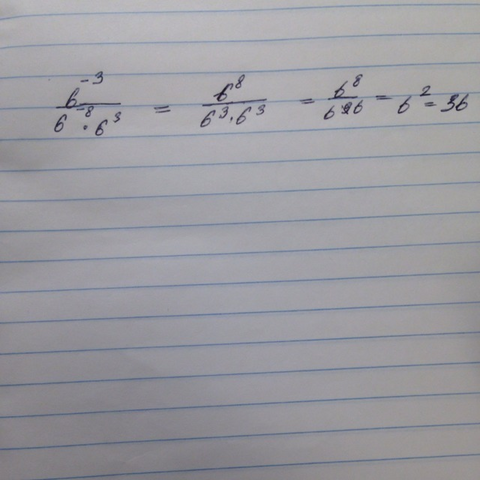 6^-3 / 6^-8 · 6^3 = 6^8 / 6^3 · 6^3 = 6^8 / 6^6 = 6^2 = 36